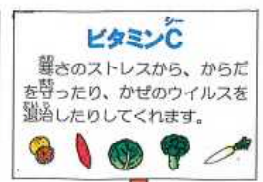 ビタミンC
シー
寒さのストレスから、からだ
を守ったり、かぜのウイルスを
退治したりしてくれます。